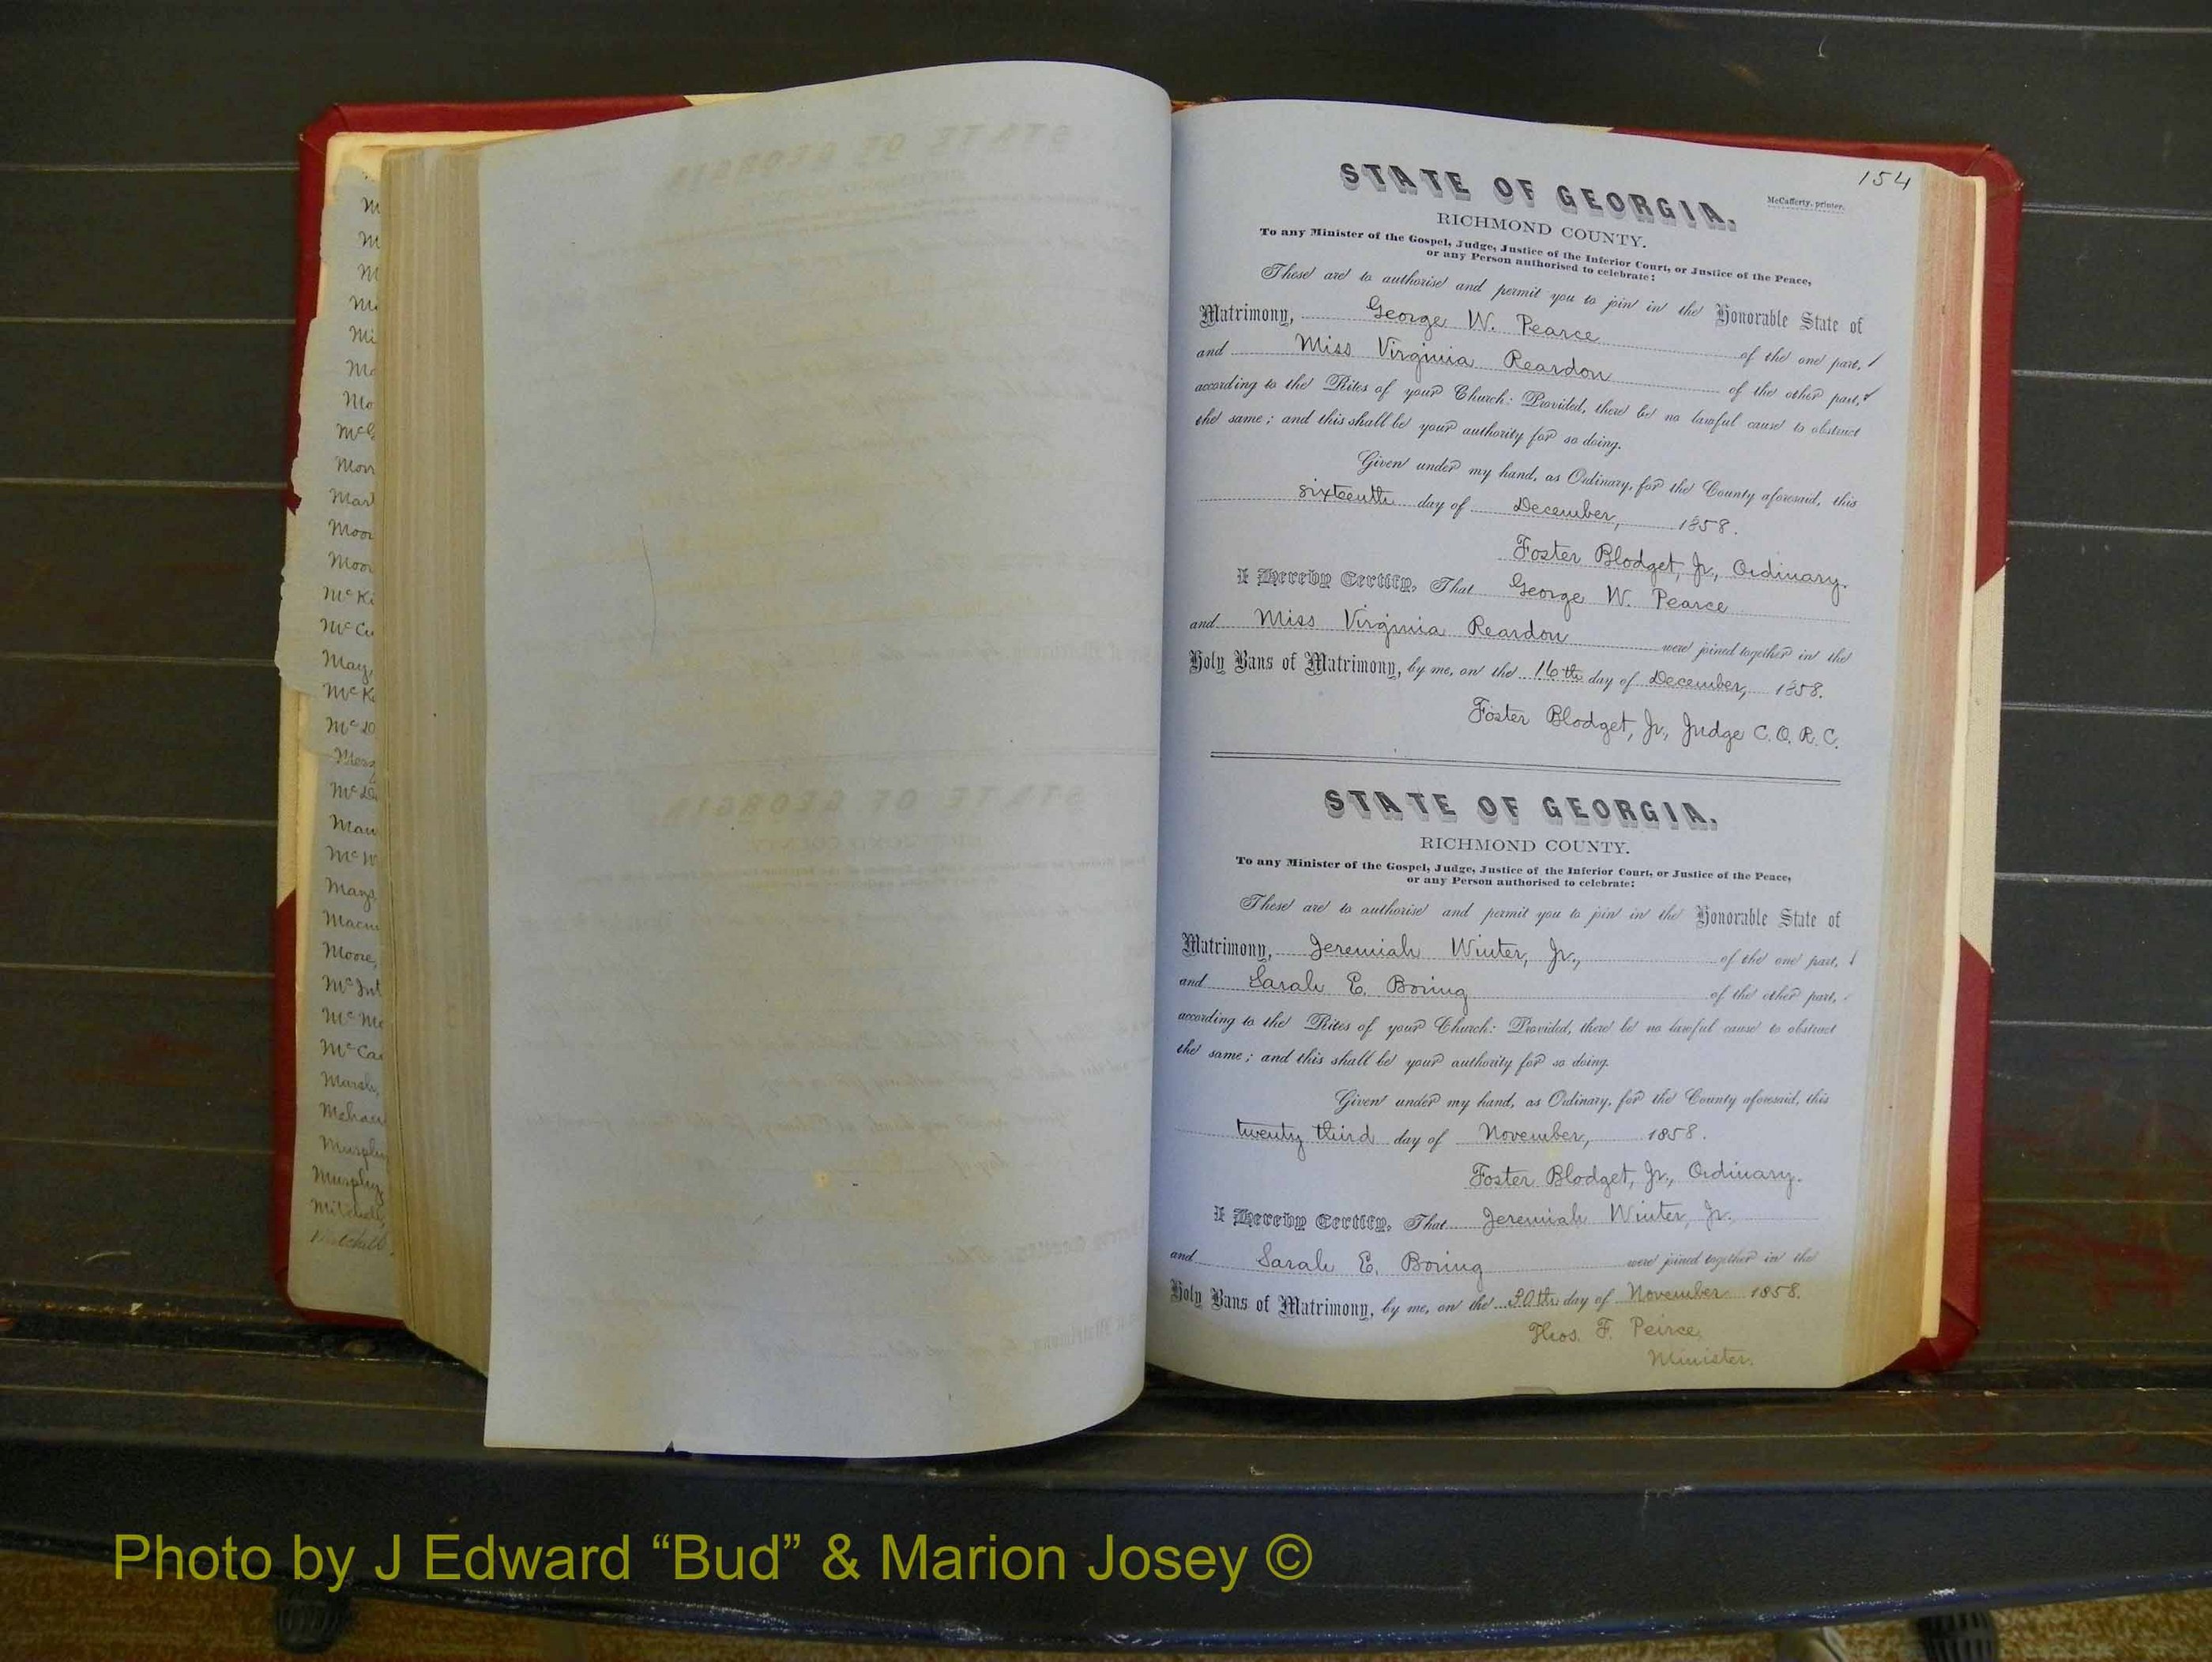 154
McCafferty, printer.
STATE OF GEORGIA.
RICHMOND COUNTY.
To any Minister of the Gospel, Judge, Justice of the Inferior Court, or Justice of the Peace,
or any Person authorised to celebrate:
These are to authorise and permit you to join in the Honorable State of
Matrimony, George W. Pearce of the one part,
and Miss Virginia Reardon of the other part,
according to the Rites of your Church: Provided, there be no lawful cause to obstruct
the same; and this shall be your authority for so doing.
Given under my hand, as Ordinary, for the County aforesaid, this
sixteenth day of December, 1858.
Foster Blodget, Jr., Ordinary.
I Hereby Certify, That George W. Pearce
and Miss Virginia Reardon were joined together in the
Holy Bans of Matrimony, by me, on the 16th day of December, 1858.
Foster Blodget, Jr., Judge C. O. R. C.
STATE OF GEORGIA.
RICHMOND COUNTY.
To any Minister of the Gospel, Judge, Justice of the Inferior Court, or Justice of the Peace,
or any Person authorised to celebrate:
These are to authorise and permit you to join in the Honorable State of
Matrimony, Jeremiah Winter, Jr., of the one part,
and Sarah E. Boring of the other part,
according to the Rites of your Church: Provided, there be no lawful cause to obstruct
the same; and this shall be your authority for so doing.
Given under my hand, as Ordinary, for the County aforesaid, this
twenty third day of November, 1858.
Foster Blodget, Jr., Ordinary.
I Hereby Certify, That Jeremiah Winter, Jr.
and Sarah E. Boring were joined together in the
Holy Bans of Matrimony, by me, on the 30th day of November 1858.
Thos. F. Peirce,
Minister.
Photo by J Edward “Bud” & Marion Josey ©